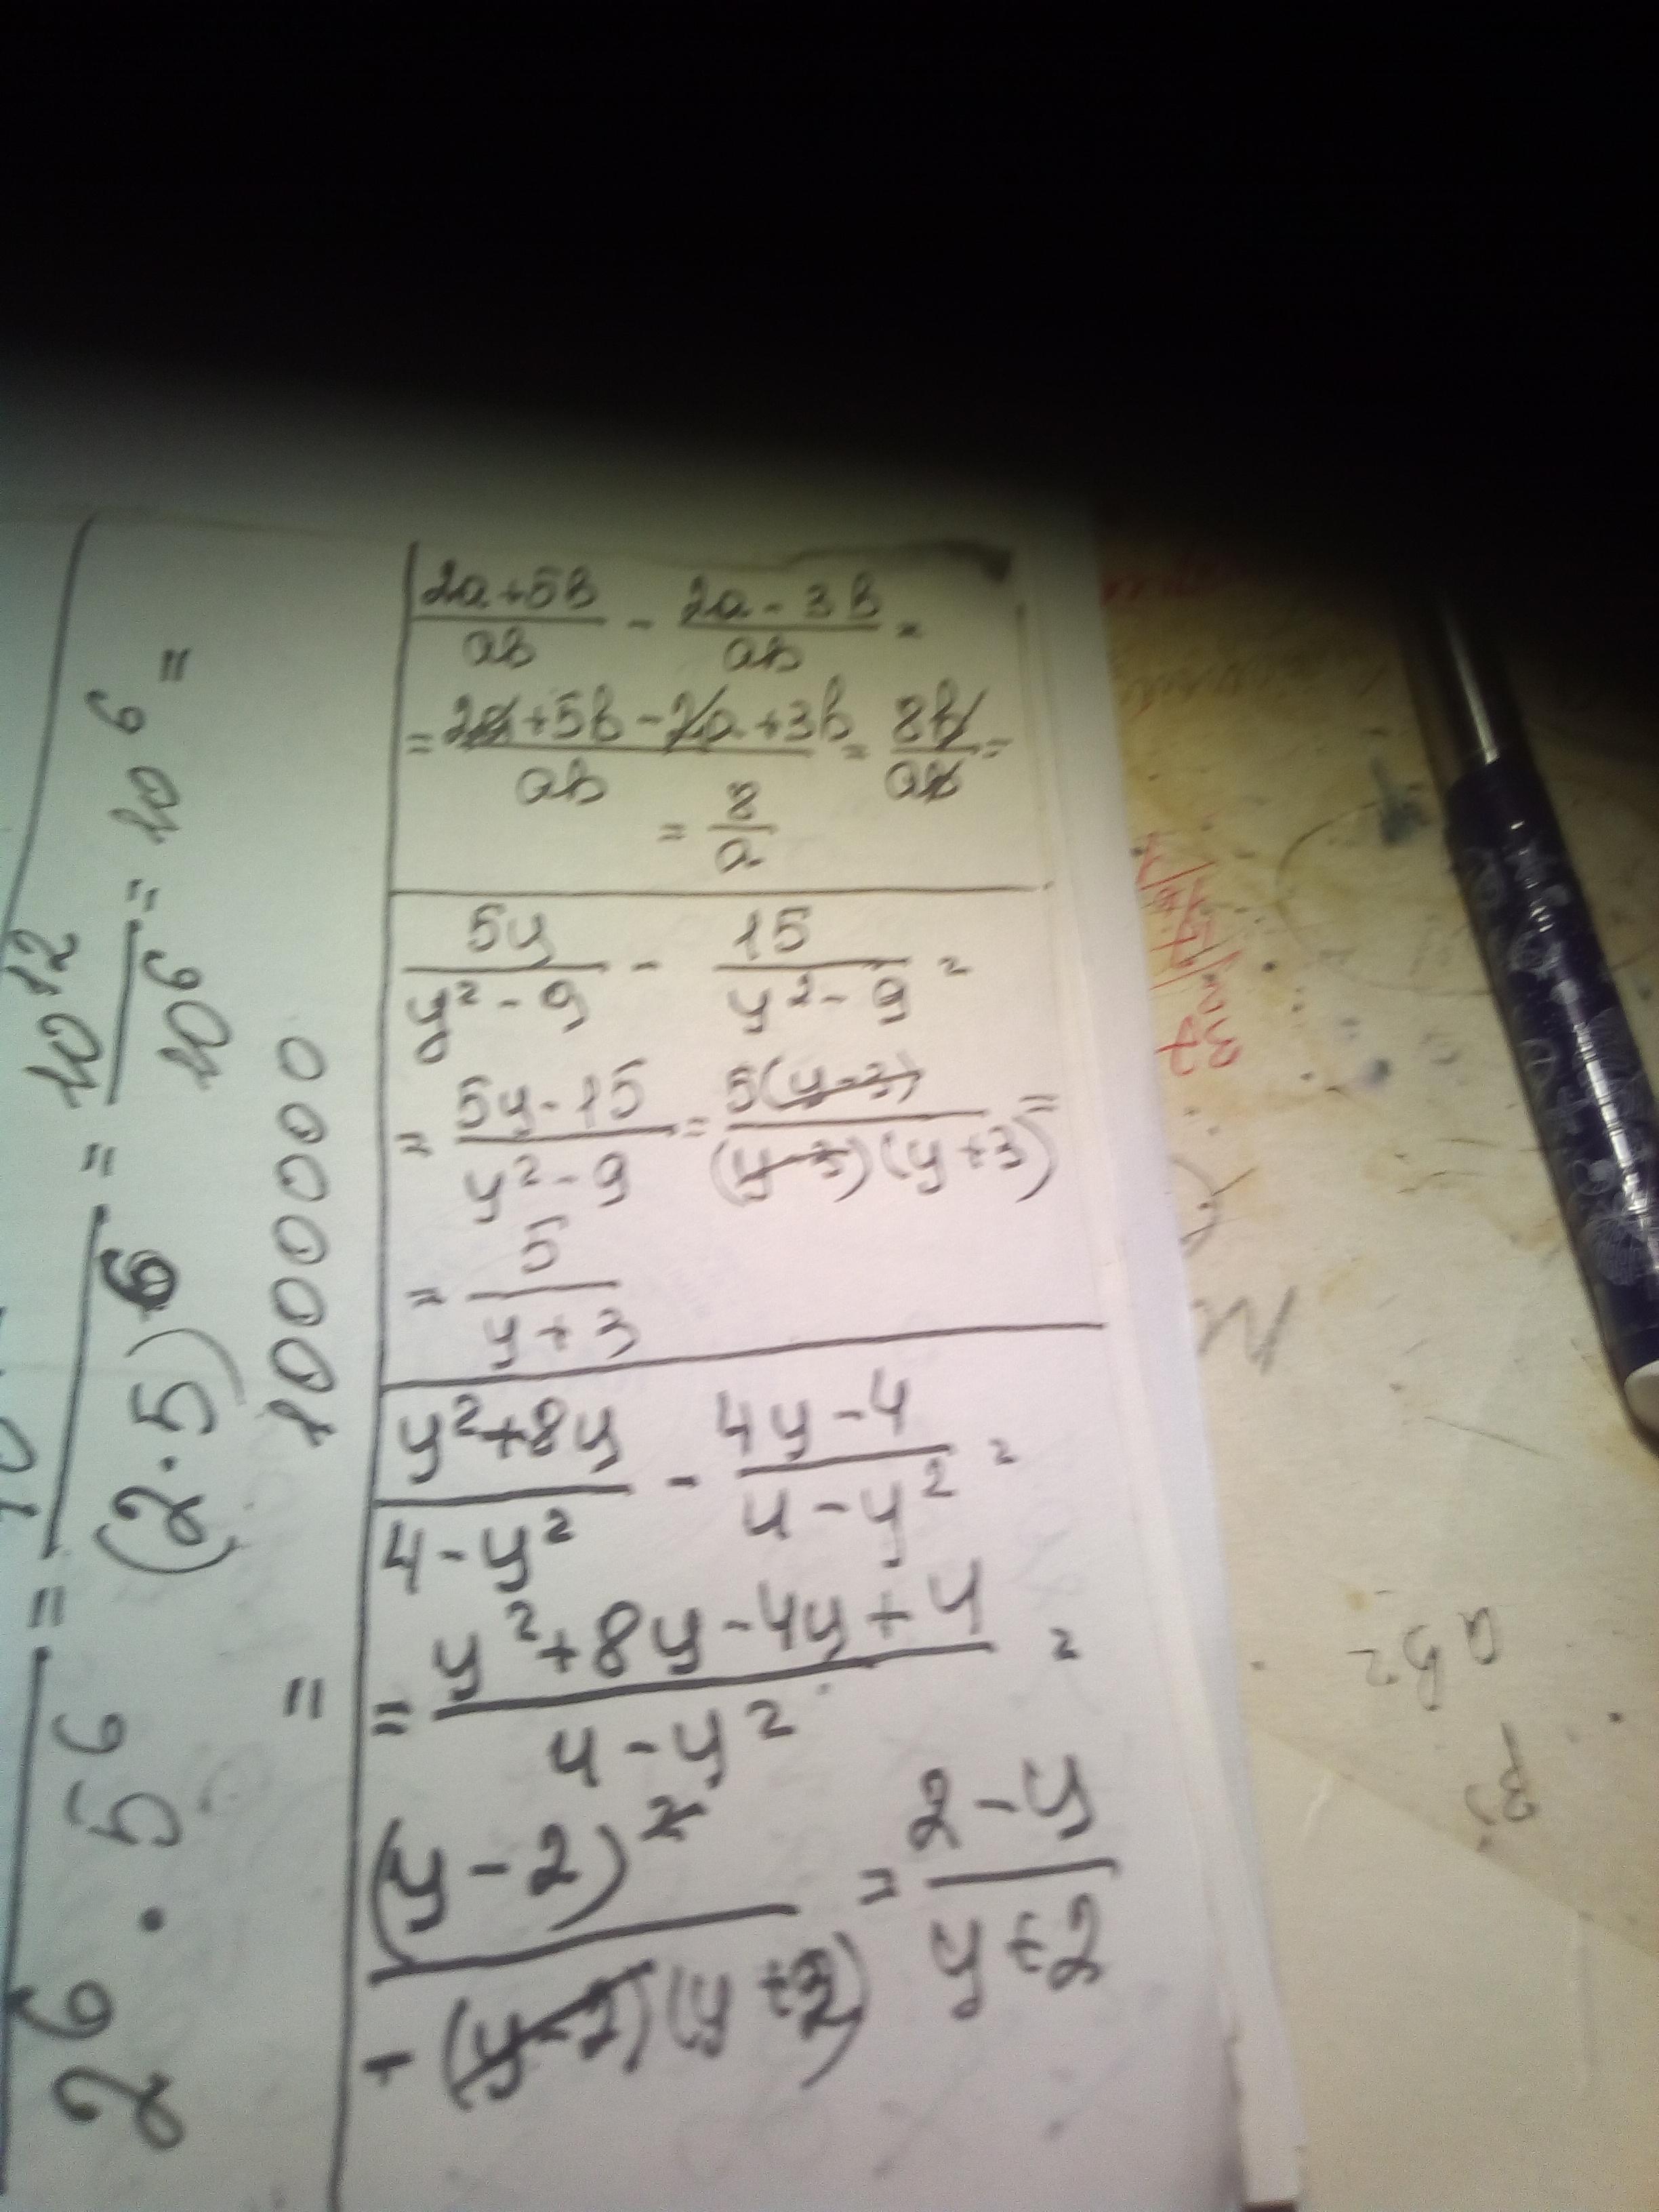 2⁶ · 5⁶ = (2 · 5)⁶ = 10¹² / 10⁶ = 10⁶ =
= 1000000
(2a+5b)/(ab) - (2a-3b)/(ab) =
= (2a+5b-2a+3b)/(ab) = (8b)/(ab) =
= 8/a
(5y)/(y²-9) - 15/(y²-9) =
= (5y-15)/(y²-9) = (5(y-3))/((y-3)(y+3)) =
= 5/(y+3)
(y²+8y)/(4-y²) - (4y-4)/(4-y²) =
= (y²+8y-4y+4)/(4-y²) =
(y-2)²/-(y-2)(y+2) = (2-y)/(y+2)